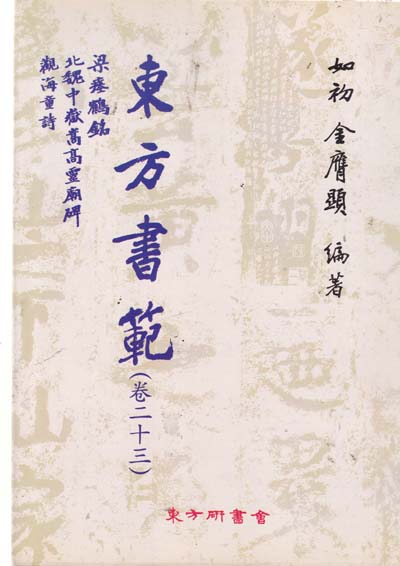 如初 金膺顯 編著
東方書範(卷二十三)
梁瘞鶴銘
北魏中嶽嵩高靈廟碑
觀海童詩
東方硏書會